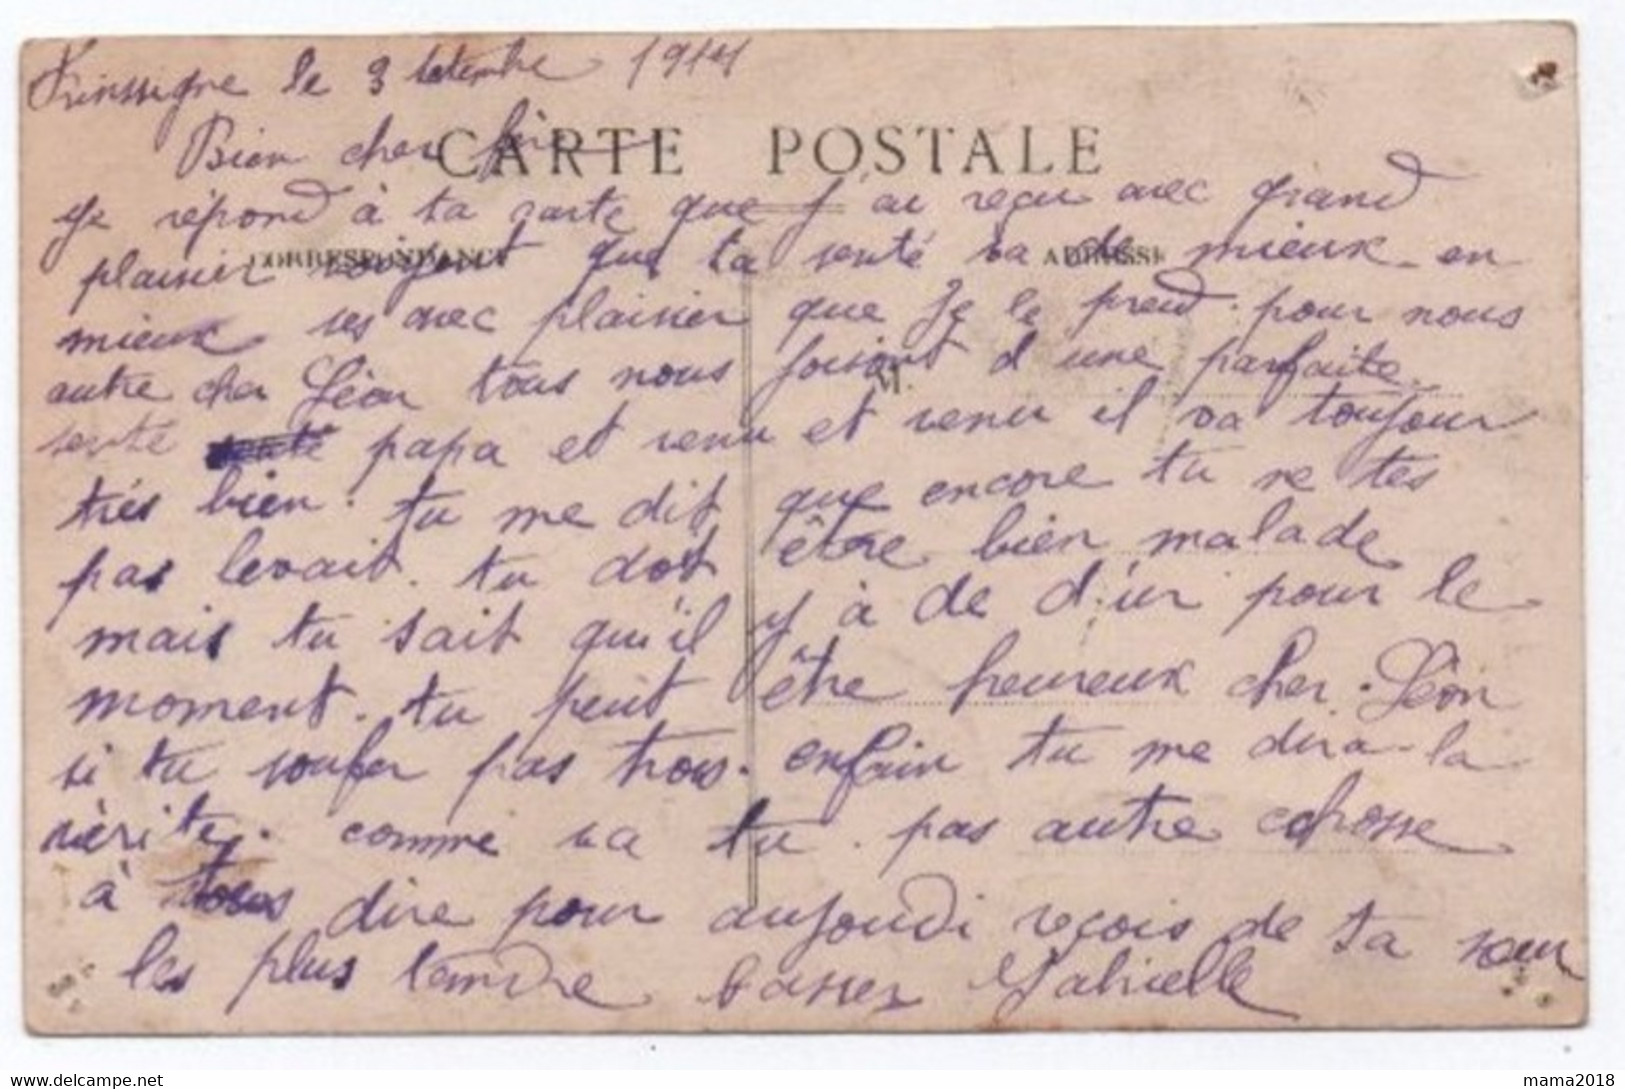 le 3 1914
CARTE POSTALE
Bien cher
Je répond à ta carte que j'ai reçu avec grand
CORRESPONDANCE ADRESSE
plaisir voiyent que ta senté va de mieux en
mieux ses avec plaisier que Je le prend. pour nous
autre cher Léon tous nous joisont d une parfaite
M.
sente papa et venu et venu il va toujour
trés bien. tu me dit que encore tu ne tes
pas levait. tu doit être bien malade
mais tu sait qu'il y à de d'ur pour le
moment. tu peut être heureux cher. Léon
si tu soufer pas trow. enfain tu me dira la
vérité. comme va tu. pas autre chosse
à dire pour aujoudi reçois de ta sœur
les plus tendre basser Gabrielle
mama2018